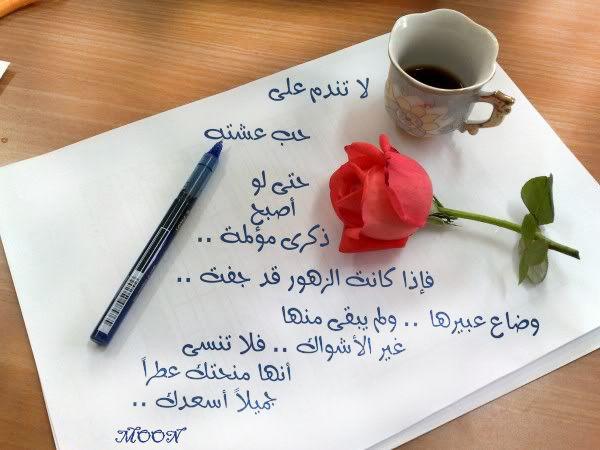 لا تندم على
حب عشته
حتى لو
أصبح
ذكرى مؤلمة ..
فإذا كانت الزهور قد جفت ..
وضاع عبيرها .. ولم يبقى منها
غير الأشواك .. فلا تنسى
أنها منحتك عطراً
جميلاً أسعدك ..
MOON